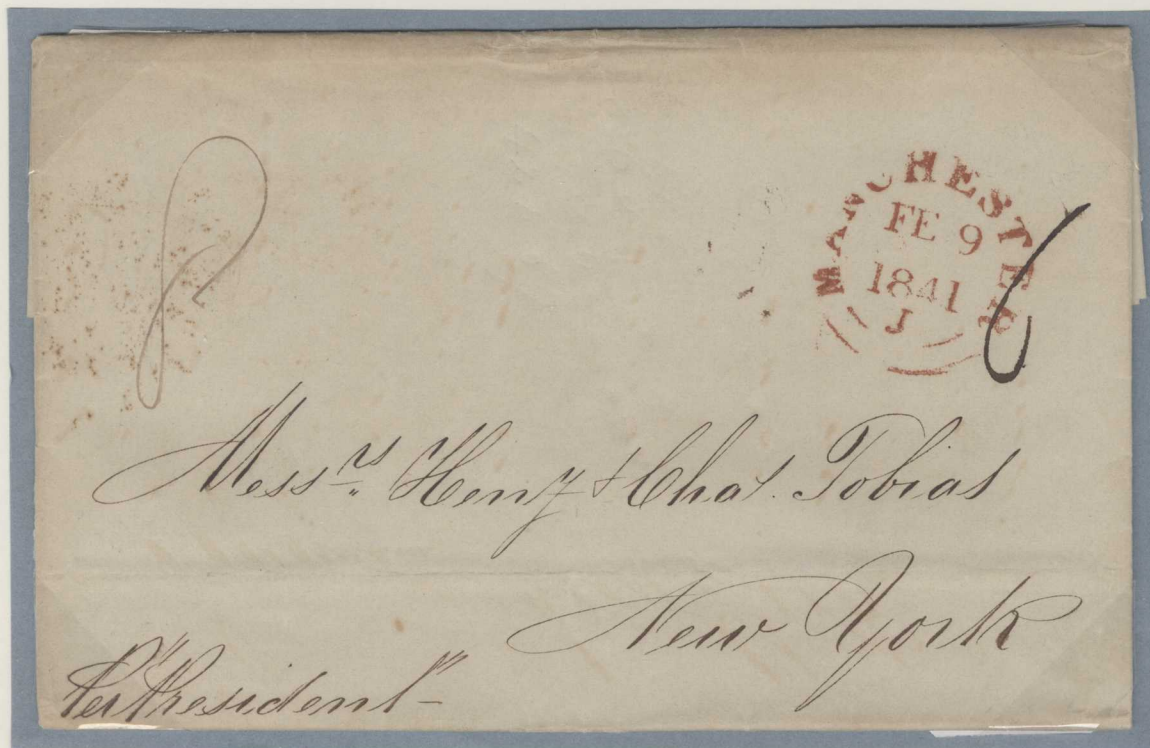 8
MANCHESTER
FE 9
1841
J
6
Mess.rs Heny & Chas. Tobias
New York
Per "President"